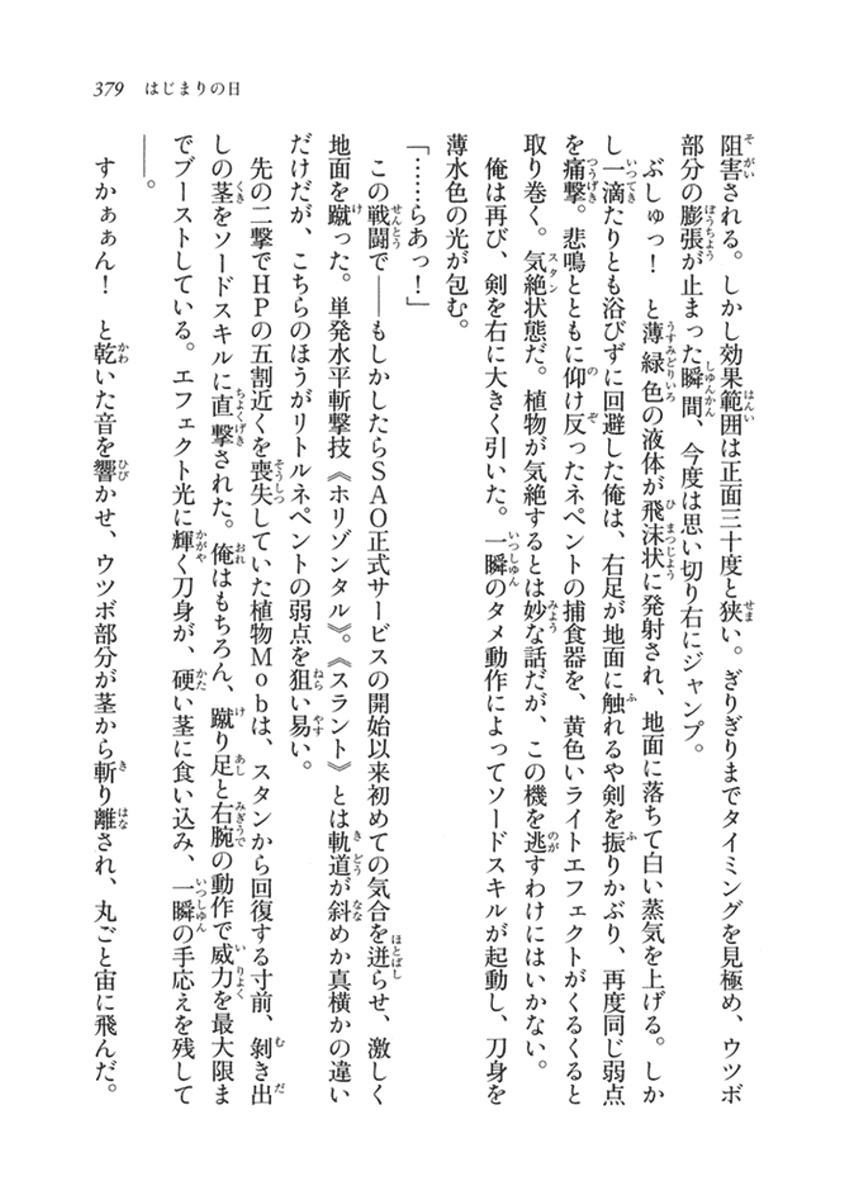 379 はじまりの日
阻害される。しかし効果範囲は正面三十度と狭い。ぎりぎりまでタイミングを見極め、ウツボ
部分の膨張が止まった瞬間、今度は思い切り右にジャンプ。
ぶしゅっ！　と薄緑色の液体が飛沫状に発射され、地面に落ちて白い蒸気を上げる。しか
し一滴たりとも浴びずに回避した俺は、右足が地面に触れるや剣を振りかぶり、再度同じ弱点
を痛撃。悲鳴とともに仰け反ったネペントの捕食器を、黄色いライトエフェクトがくるくると
取り巻く。気絶状態だ。植物が気絶するとは妙な話だが、この機を逃すわけにはいかない。
俺は再び、剣を右に大きく引いた。一瞬のタメ動作によってソードスキルが起動し、刀身を
薄水色の光が包む。
「……らあっ！」
この戦闘で――もしかしたらＳＡＯ正式サービスの開始以来初めての気合を迸らせ、激しく
地面を蹴った。単発水平斬撃技《ホリゾンタル》。《スラント》とは軌道が斜めか真横かの違い
だけだが、こちらのほうがリトルネペントの弱点を狙い易い。
先の二撃でＨＰの五割近くを喪失していた植物Ｍｏｂは、スタンから回復する寸前、剝き出
しの茎をソードスキルに直撃された。俺はもちろん、蹴り足と右腕の動作で威力を最大限ま
でブーストしている。エフェクト光に輝く刀身が、硬い茎に食い込み、一瞬の手応えを残して
――。
すかぁぁん！　と乾いた音を響かせ、ウツボ部分が茎から斬り離され、丸ごと宙に飛んだ。